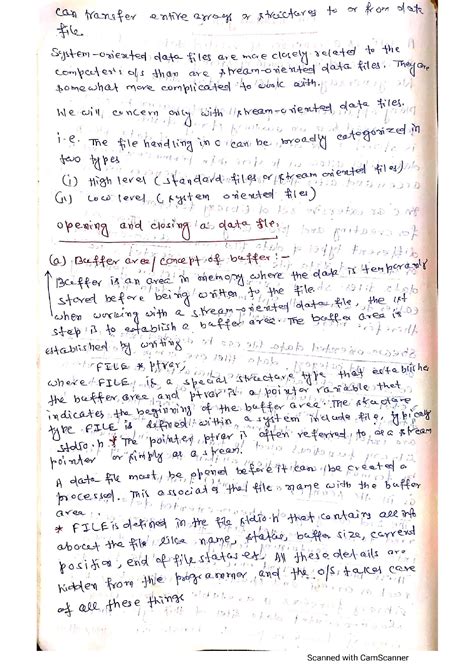 can transfer entire arrays or structures to or from data
file.
System-oriented data files are more closely related to the
computer's o/s than are stream-oriented data files. They are
somewhat more complicated to work with.
We will concern only with stream-oriented data files.
i.e. The file handling in c can be broadly categorized in
two types
(i) High level (standard files or stream oriented files)
(ii) Low level (system oriented files)
opening and closing a data file:
(a) Buffer area/concept of buffer:-
Buffer is an area in memory where the data is temporarily
stored before being written to the file.
when working with a stream-oriented data file, the 1st
step is to establish a buffer area. The buffer area is
established by writing
FILE *ptvar;
where FILE is a special structure type that establishes
the buffer area and ptvar is a pointer variable that
indicates the beginning of the buffer area. The structure
type FILE is defined within a system include file, typically
stdio.h * The pointer, ptvar is often referred to as a stream
pointer or simply as a stream.
A data file must be opened before it can be created or
processed. This associates the file name with the buffer
area.
* FILE is defined in the file stdio.h that contains all info
about the file like name, status, buffer size, current
position, end of file status etc. All these details are
hidden from the programmer and the o/s takes care
of all these things
Scanned with CamScanner